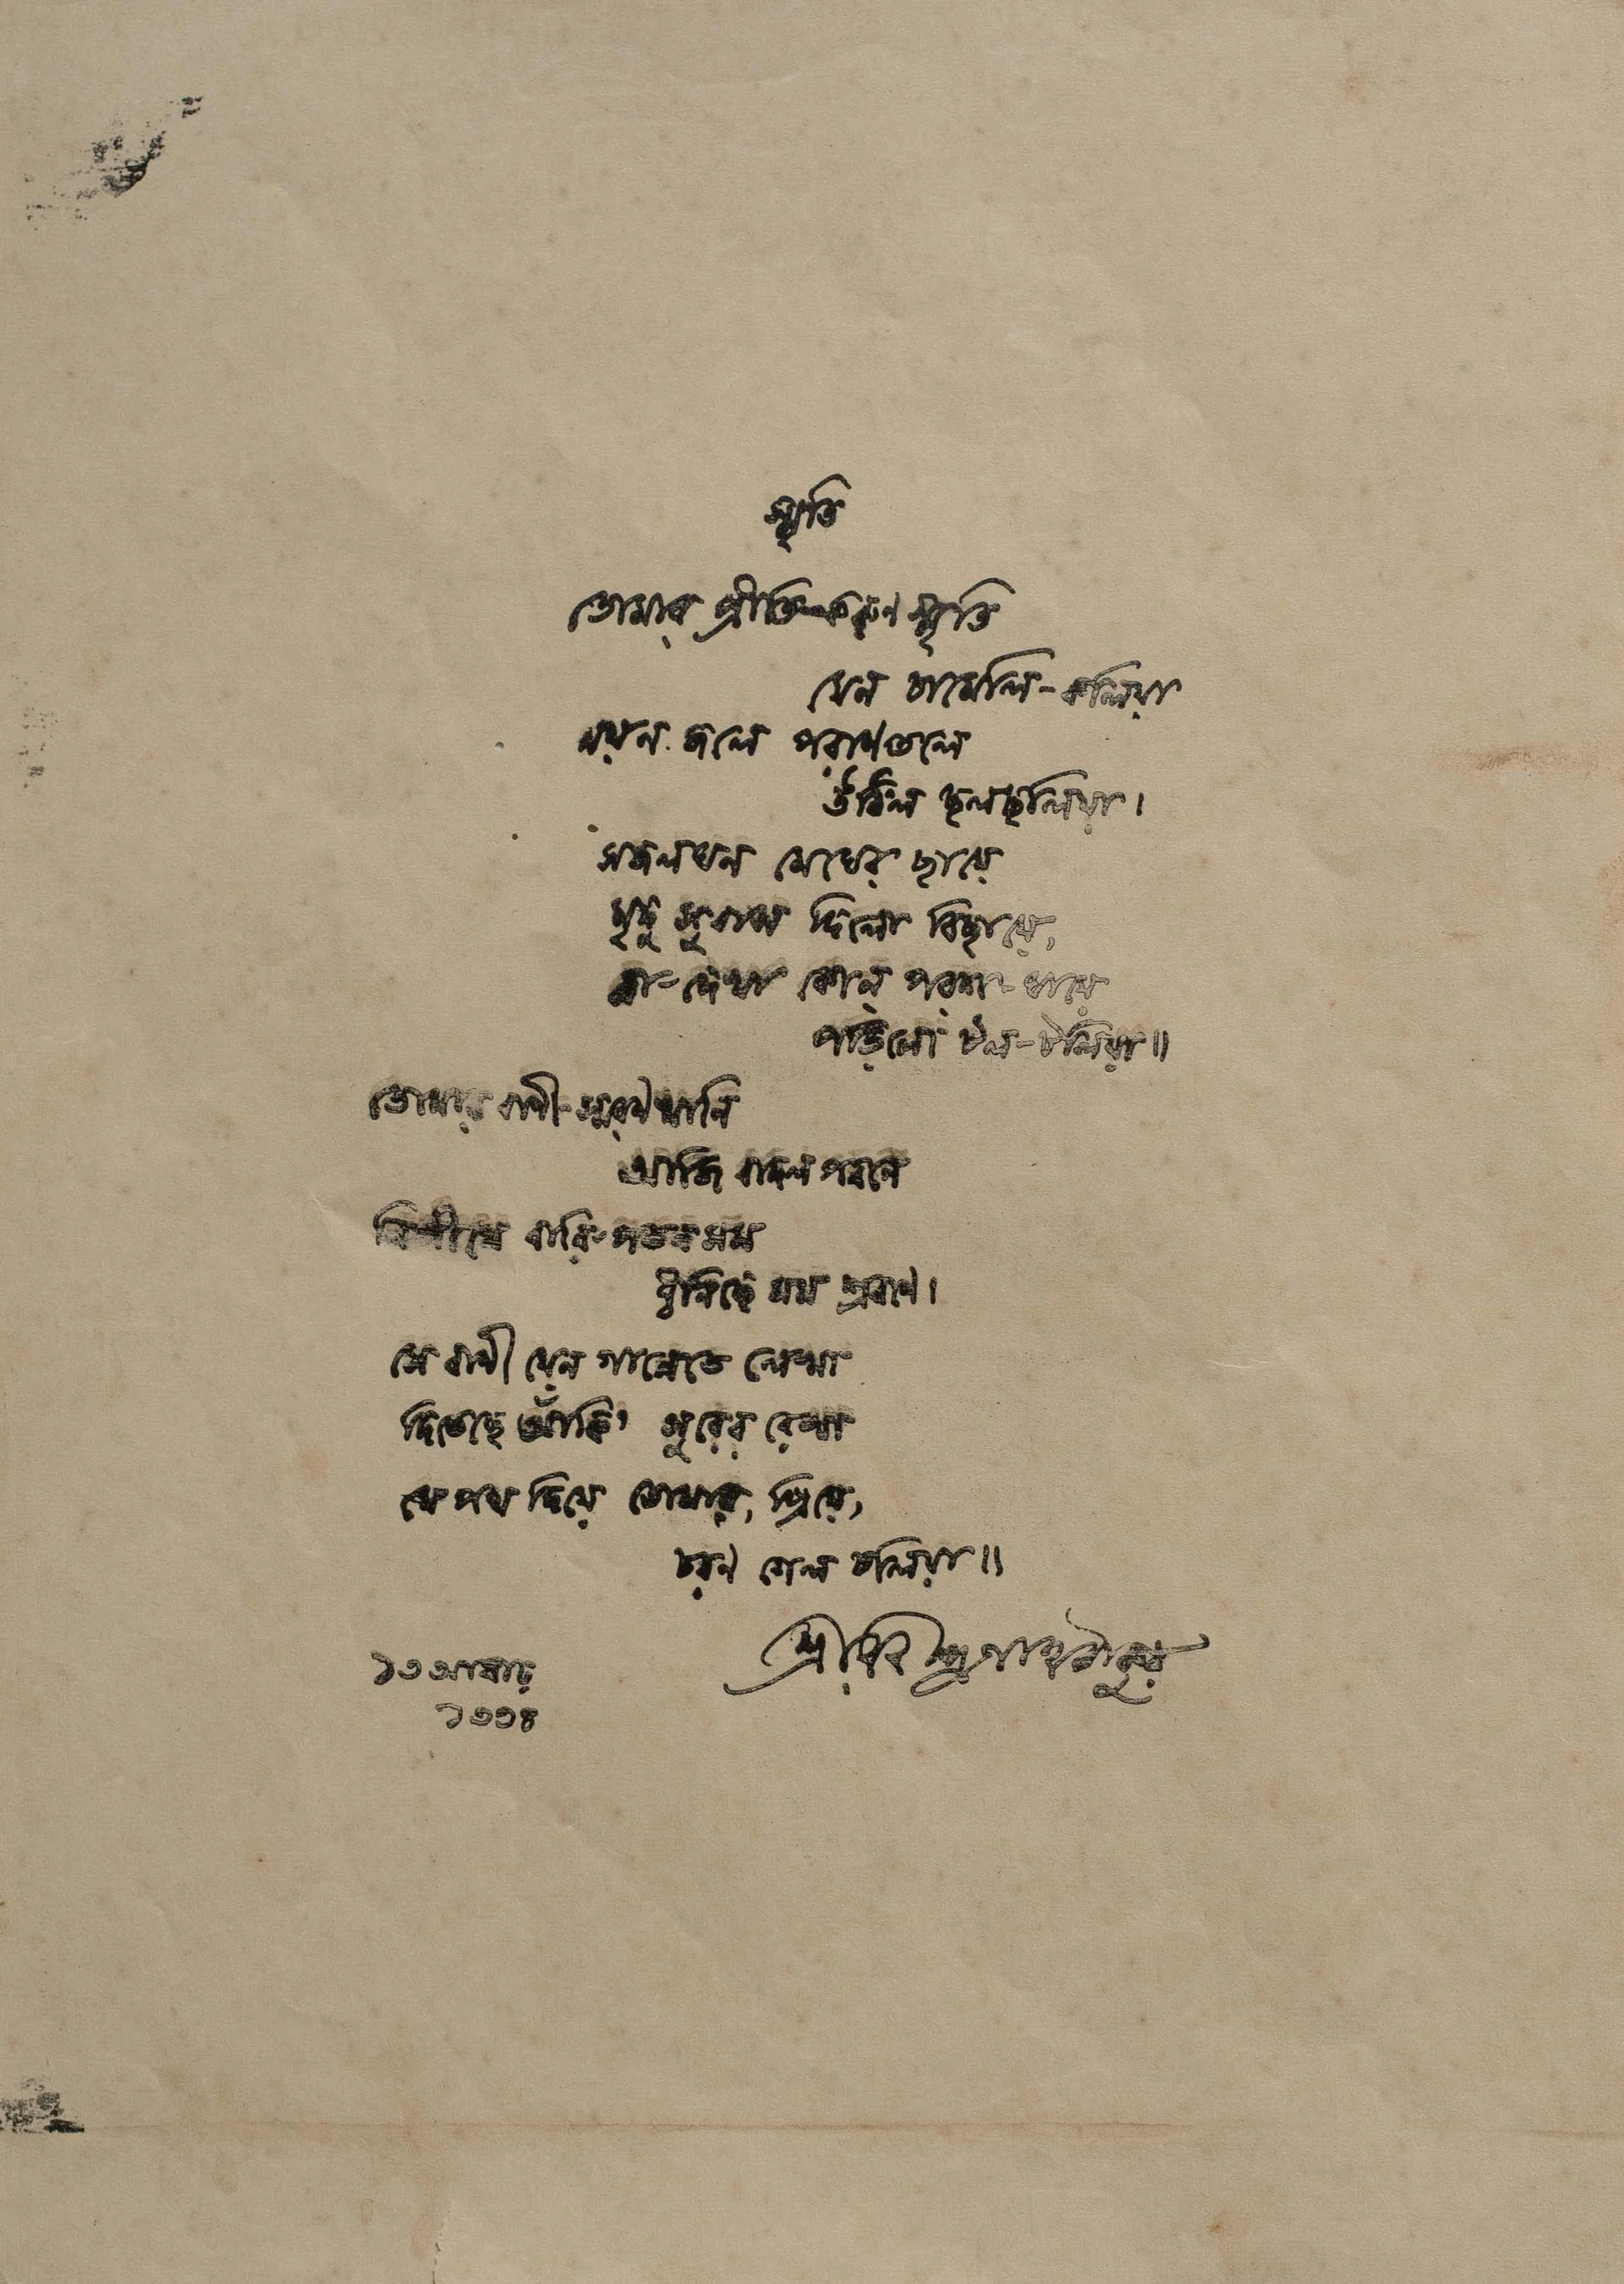 স্মৃতি
তোমার প্রীতি-করুণ স্মৃতি
যেন চামেলি-কলিয়া
নয়ন জলে পরাণতলে
উঠিল ছলছলিয়া।
সজলঘন মেঘের ছায়ে
মৃদু সুবাস দিলো বিছায়ে,
না-দেখা কোন্ পরশ-ঘায়ে
পড়িলো টল-টলিয়া॥
তোমার বাণী-স্মরণখানি
আজি বাদল পবনে
নিশীথে বারি-পতনসম
ধ্বনিছে মম শ্রবণে।
সে বাণী যেন গানেতে লেখা
দিতেছে আঁকি' সুরের রেখা
যে পথ দিয়ে তোমার, প্রিয়ে,
চরণ গেল চলিয়া॥
শ্রীরবীন্দ্রনাথ ঠাকুর
১৩ আষাঢ়
১৩৩৪